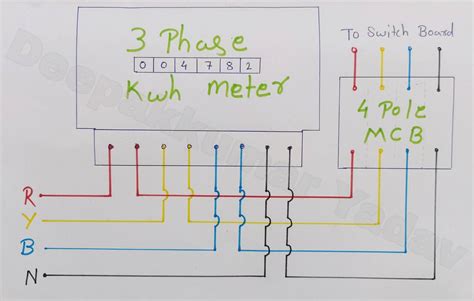 3 Phase
004782
Kwh meter
To Switch Board
4 Pole
MCB
R
Y
B
N
Deepakkumar Yadav